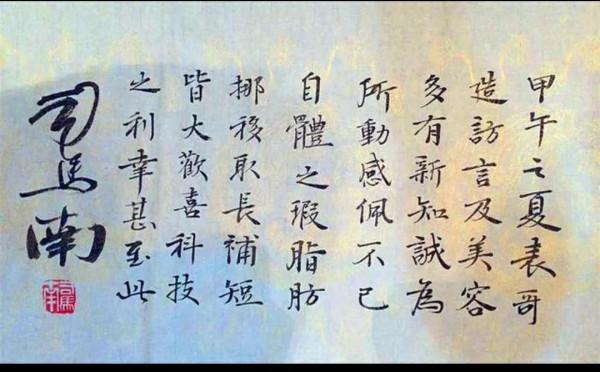 甲午之夏表哥
造訪言及美容
多有新知誠為
所動感佩不已
自體之瑕脂肪
挪移取長補短
皆大歡喜科技
之利幸甚至此
司馬南